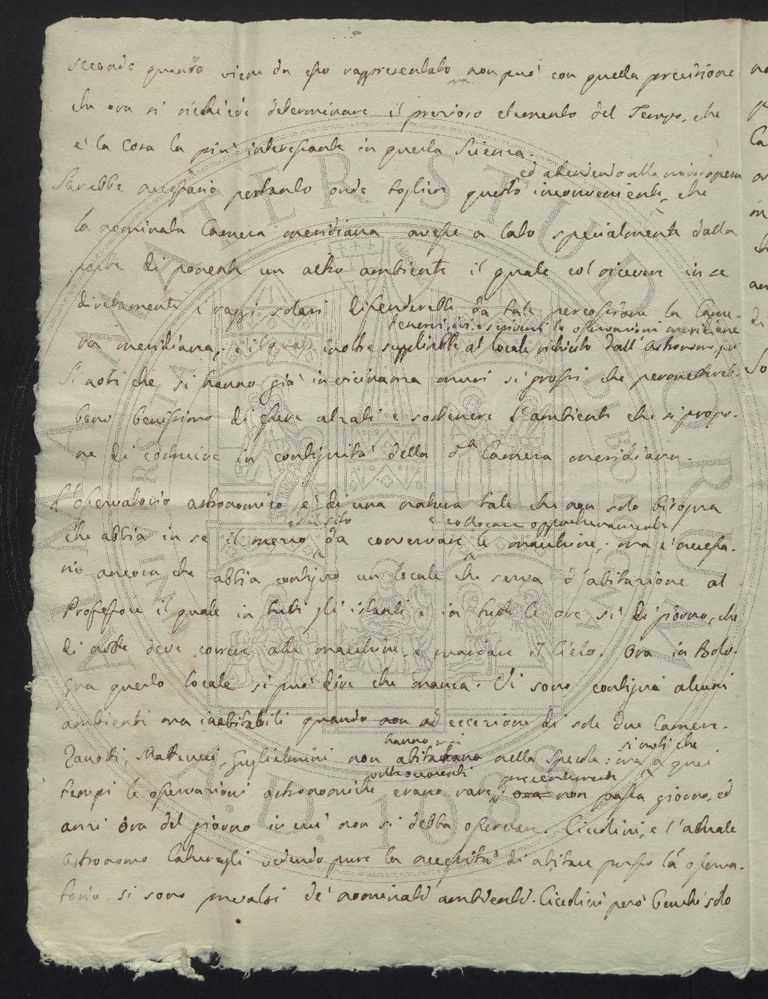 secondo quanto viene da esso rappresentato non può con quella precisione
che ora si richiede determinare il prezioso elemento del Tempo, che
è la cosa la più interessante in questa Scienza.
ed attendendo alla
Sarebbe necessario pertanto onde togliere questo inconveniente, che
la nominata Camera meridiana avesse a lato specialmente dalla
parte di ponente un altro ambiente il quale col ricevere in se
direttamente i raggi solari difenderebbe da tale percossione la Came-
le osservazioni meridiane
ra meridiana, il quale inoltre supplirebbe al locale richiesto dall'Astronomo,
Si noti che si hanno già in vicinanza muri sì grossi che permettereb-
bero benissimo di essere alzati e sostenere l'ambiente che si propo-
ne di costruire in contiguità della dª Camera meridiana.
L'osservatorio astronomico è di una natura tale che non solo bisogna
ed il sito e collocare opportunamente
che abbia in se il mezzo da conservare le macchine, ma è necessa-
rio ancora che abbia contiguo un locale che serva d'abitazione al
Professore il quale in tutti gl'istanti e in tutte le ore sì di giorno, che
di notte deve correre alle macchine, e guardare il Cielo. Ora in Bolo-
gna questo locale si può dire che manca. Vi sono contigui alcuni
ambienti ma inabitabili quando non ad eccezione di sole due Camere.
hanno mai si noti che
Zanotti, Matteucci, Guglielmini non abitavano nella Specola: ma a quei
presentemente
tempi le operazioni astronomiche erano rare, ora non passa giorno, ed
anzi ora del giorno in cui non si debba osservare. Ciccolini, e l'attuale
astronomo Caturegli vedendo pure la necessità di abitare presso la osserva-
torio si sono prevalsi de' nominati ambienti. Ciccolini però benchè solo